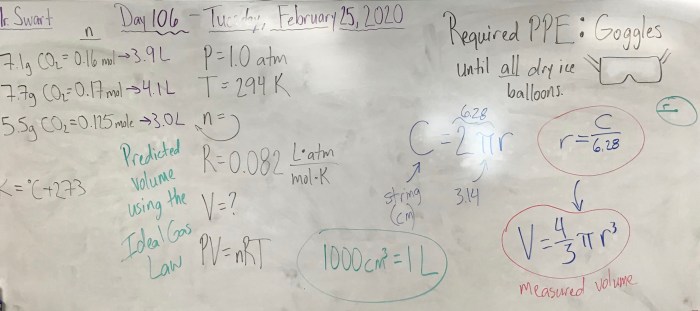 Mr. Swart
Day 106 - Tuesday, February 25, 2020
n
7.1g CO₂ = 0.16 mol → 3.9 L
7.7g CO₂ = 0.17 mol → 4.1 L
5.5g CO₂ = 0.125 mole → 3.0 L
K = °C + 273
Predicted
volume
using the
Ideal Gas
Law
P = 1.0 atm
T = 294 K
n =
R = 0.082 L·atm / mol·K
V = ?
PV = nRT
1000 cm³ = 1 L
Required PPE: Goggles
until all dry ice
balloons.
6.28
C = 2πr
string
(cm)
3.14
r = C / 6.28
V = 4/3 πr³
measured volume